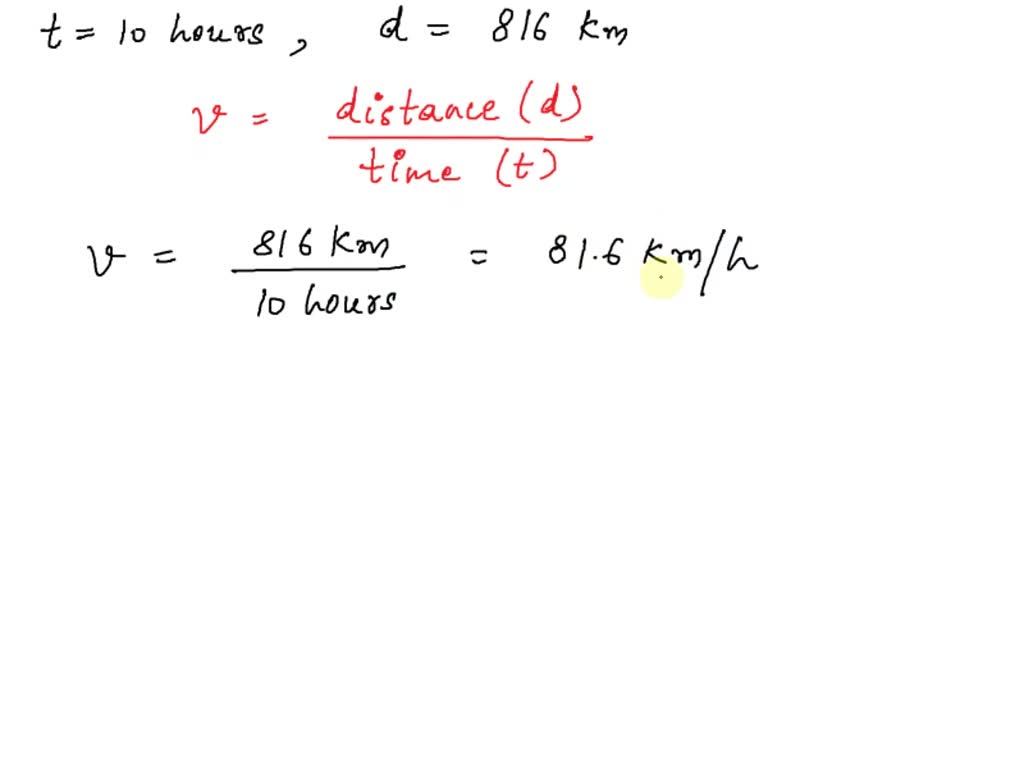 t = 10 hours, d = 816 km
v = distance (d) / time (t)
v = 816 km / 10 hours = 81.6 km/h